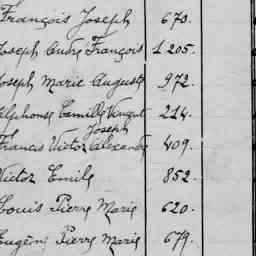 François Joseph 673.
Joseph Andre François 1205.
Joseph Marie Auguste 972.
Alphonse Camille Vincent 214.
Joseph
Francis Victor Alexandre 409.
Victor Emile 852.
Louis Pierre Marie 620.
Eugène Pierre Marie 679.